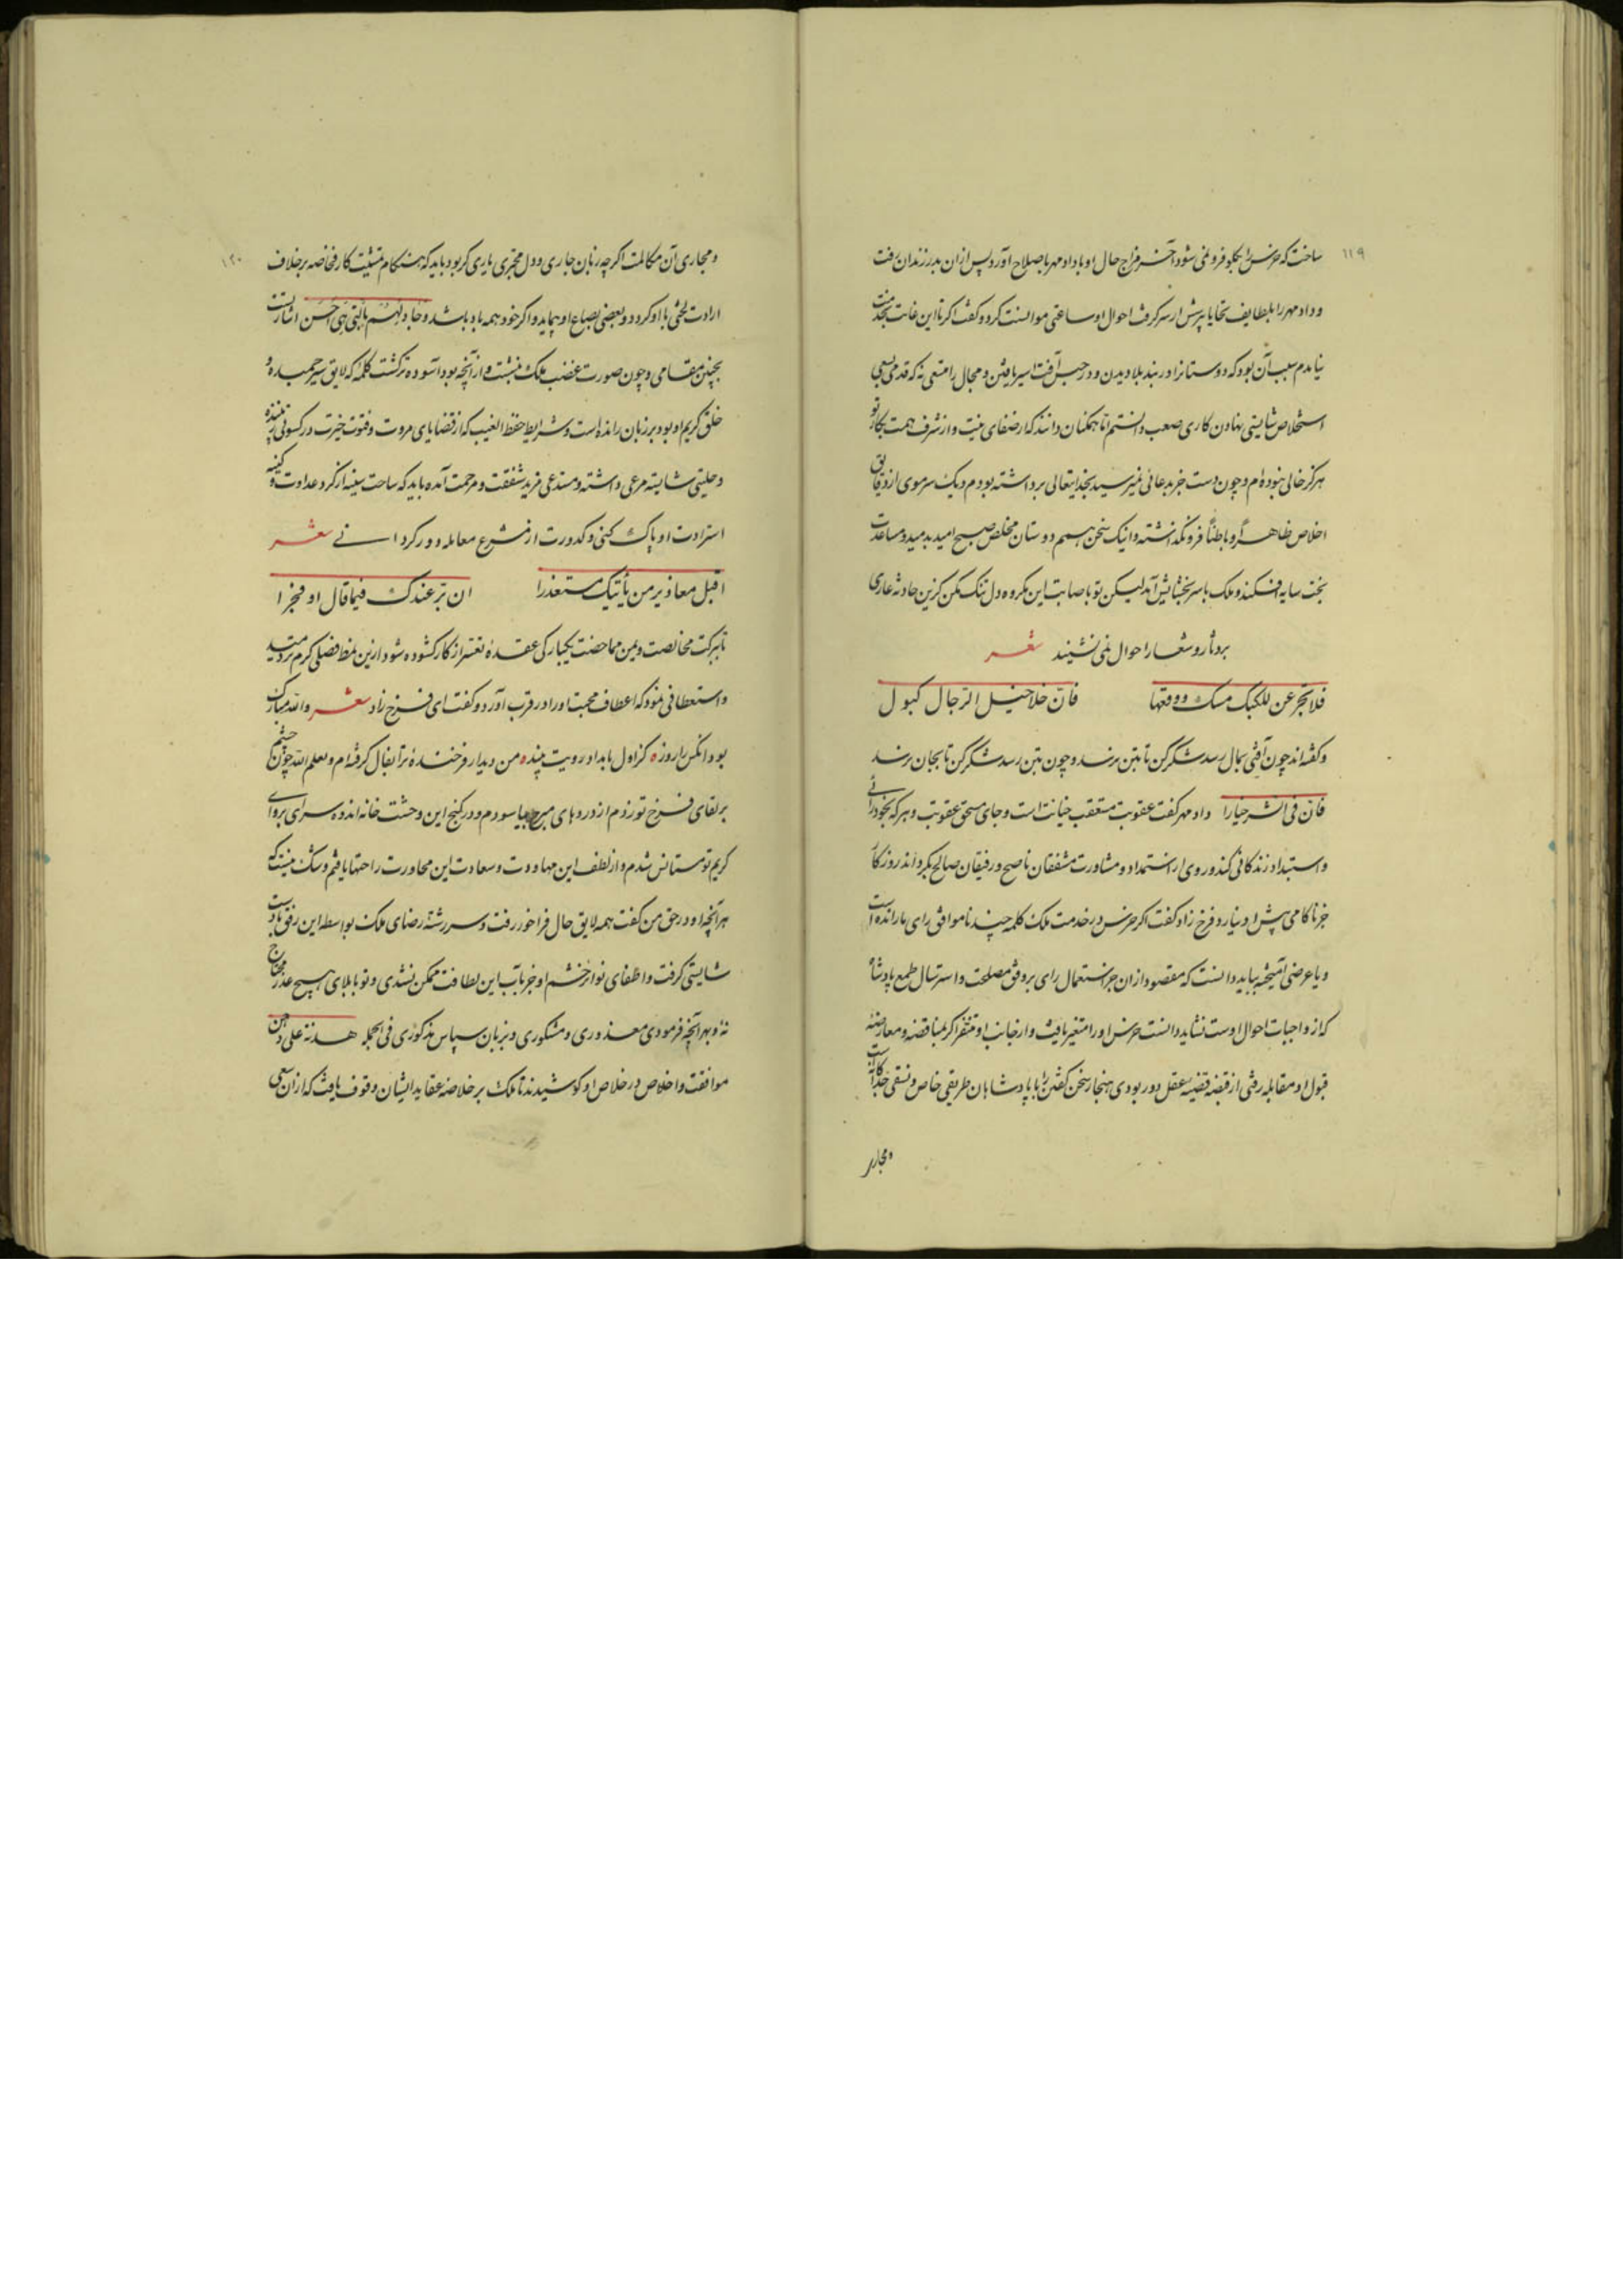 ۱۱۹
ساخت که خرس را بگلو فرو نمی شود آخر مزاج حال او با داد مهر باصلاح آورد پس ازان بدر زندان رفت
و داد مهر را بلطایف تحایا پرسش از سر کرفت احوال او ساعتی موانست کرد و کفت اکر تا این غایت بخدمت
نیامدم سبب آن بود که دوستانرا در بند بلا دیدن و در حبس آفت اسیر یافتن و مجال را متسعی نه که قدم سعی
استخلاص شایستی نهادن کاری صعب دانستم تا همکنان دانند که از صفای نیت و از شرف همت بکار تو
هرکز خالی نبوده ام و چون دست جز بدعائی نمیرسید بخدایتعالی برداشته بودم و یک سر موی از دقایق
اخلاص ظاهرا و باطنا فرو نکذاشته و اینک سخن هم دوستان مخلص صبح امید بدمید و مساعدت
بخت سایه افکند و ملک با سر بخشایش آمد لیکن تو باصابت این مکروه دل تنک مکن کزین حادثه عاری
بر دثار و شعار احوال نمی نشیند شعر
فلا تجزعن للکبل مسک وقعها فان خلاخیل الرجال کبول
و کفته اند چون آفتی بمال رسد شکر کن تا بتن نرسد و چون بتن رسد شکر کن تا بجان نرسد
فان فی الشر خیارا داد مهر کفت عقوبت متعقب خیانت است و جای مستحق عقوبت و هر که بخودرائی
و استبداد زندکانی کند و روی از استمداد و مشاورت مشفقان ناصح و رفیقان صالح بکرداند روزکار
جز ناکامی پیش او نیارد فرخ زاد کفت اکر خرس در خدمت ملک کلمه چند ناموافق رای ما رانده است
و با غرضی آمیخته بباید دانست که مقصود ازان جز استعمال رای بر وفق مصلحت و استرسال طبع پادشاه
که از واجبات احوال اوست نشاید دانست خرس او را متغیر یافت و از جانب او متنفر اکر بمناقضه و معارضه
قبول او مقابله رفتی از قبضه قضیه عقل دور بودی هنجار سخن کفتن را با پادشاهان طریقی خاص و نسقی جداکانه است
و مجاری
۱۲۰
و مجاری آن مکالمت اکر چه زبان جاری و دل مجبری یاری کر بود باید که هنکام مشیت کار فخاصه بر خلاف
ارادت لختی با او کردد و بعضی بصاع او پیماید و اکر خود همه باد باشد و جادلهم بالتی هی احسن اشارتست
بچنین مقامی و چون صورت غضب ملک بنشست و از آنچه بود آسوده تر کشت کلمه که لایق سیر حمیده و
خلق کریم او بود بر زبان رانده است و شرایط حفظ الغیب که از قضایای مروت و فتوت خیزت در کسوتی زیبنده
و حلیتی شایسته مرعی داشته و مستدعی مزید شفقت و مرحمت آمده باید که ساحت سینه از کرد عداوت و کینه
استرادت او پاک کنی و کدورت از مشرع معامله دور کردانی شعر
اقبل معاذیر من یأتیک معتذرا ان بر عندک فیما قال او فجرا
تا ببرکت مخالصت و یمن مماحضت یکبارکی عقده تعسر از کار کشوده شود ازین نمط فصلی کرم تردید
و استعطافی نمود که اعطاف محبت او را در قرب آورد و کفت ای فرخ زاد شعر والله مبارک
بود انکس را روز ٥ کز اول بامداد رویت بیند ٥ من دیدار فرخنده ترا بفال کرفته ام و یعلم الله چون چشم
بر لقای فرخ تو زدم از دردهای مبرح بیاسودم و در کنج این وحشت خانه اندوه سرای بروای
کریم تو مستانس شدم و از لطف این مهاودت و سعادت این محاورت راحتها یافتم و شک نیست که
هر آنچه او در حق من کفت همه لایق حال فراخور رفت و سر رشته رضای ملک بواسطه این رفق بادست
شایستی کرفت و اطفای نوایر خشم او جز بآب این لطافت ممکن نشدی و تو با بلای هیچ عذر محتاج
نه و بهر آنچه فرمودی معذوری و مشکوری و بزبان سپاس مذکوری فی الجمله هدنة علی دخن
موافقت و اخلاص در خلاص او کوشیدند تا ملک بر خلاصه عقاید ایشان وقوف یافت که ازان سعی